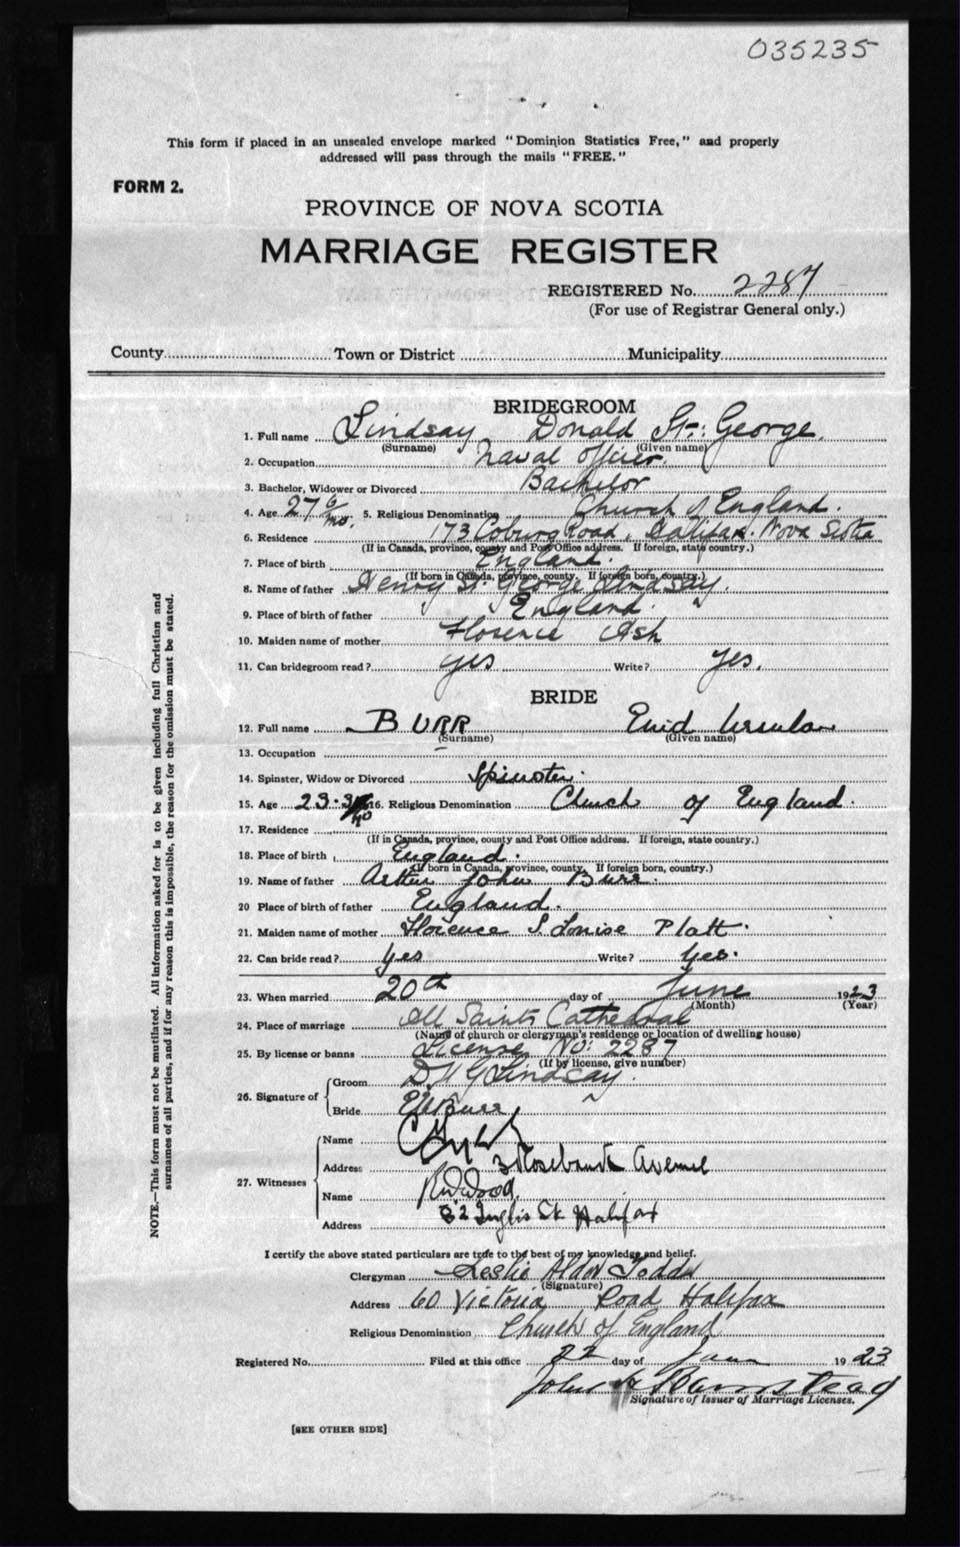 035235
This form if placed in an unsealed envelope marked "Dominion Statistics Free," and properly
addressed will pass through the mails "FREE."
FORM 2.
PROVINCE OF NOVA SCOTIA
MARRIAGE REGISTER
REGISTERED No. 2287
(For use of Registrar General only.)
County Town or District Municipality
BRIDEGROOM
1. Full name Lindsay Donald St. George.
(Surname) (Given name)
2. Occupation Naval officer.
3. Bachelor, Widower or Divorced Bachelor
4. Age 27 6/mo. 5. Religious Denomination Church of England.
6. Residence 173 Coburg Road, Halifax. Nova Scotia
(If in Canada, province, county and Post Office address. If foreign, state country.)
7. Place of birth England.
(If born in Canada, province, county. If foreign born, country.)
8. Name of father Henry St. George Lindsay.
9. Place of birth of father England.
10. Maiden name of mother Florence Ash
11. Can bridegroom read? yes Write? yes.
BRIDE
12. Full name BURR Enid Ursula
(Surname) (Given name)
13. Occupation
14. Spinster, Widow or Divorced Spinster.
15. Age 23. mo 16. Religious Denomination Church of England.
17. Residence
(If in Canada, province, county and Post Office address. If foreign, state country.)
18. Place of birth England.
(If born in Canada, province, county, If foreign born, country.)
19. Name of father Arthur John Burr.
20 Place of birth of father England.
21. Maiden name of mother Florence S. Louise Platt.
22. Can bride read? Yes Write? Yes.
23. When married 20th day of June 1923
(Month) (Year)
24. Place of marriage All Saints Cathedral
(Name of church or clergyman's residence or location of dwelling house)
25. By license or banns License No: 2287
(If by license, give number)
26. Signature of Groom D. St G Lindsay.
Bride E U Burr
27. Witnesses
Name
Address 3 Rosebank Avenue
Name Wood.
Address 82 Inglis St. Halifax
I certify the above stated particulars are true to the best of my knowledge and belief.
Clergyman Leslie Aldor Todd
(Signature)
Address 60 Victoria Road Halifax
Religious Denomination Church of England
Registered No. Filed at this office 22 day of June 1923
John Ramstead
Signature of Issuer of Marriage Licenses.
[SEE OTHER SIDE]
NOTE.—This form must not be mutilated. All information asked for is to be given including full Christian and
surnames of all parties, and if for any reason this is impossible, the reason for the omission must be stated.